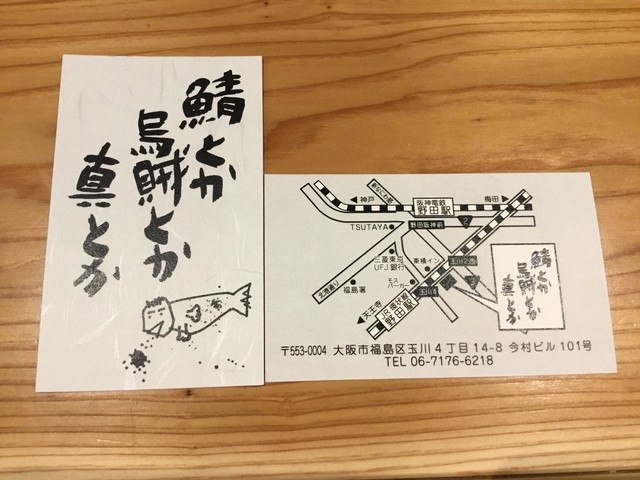 鯖とか
烏賊とか
真とか
新なにわ筋
神戸
阪神電鉄
野田駅
梅田
2
野田阪神前
TSUTAYA
三菱東京
UFJ銀行
東横イン
玉川2西
モス
バーガー
玉川4
北港通り
福島署
天王寺
JR環状線
野田駅
鯖とか
烏賊とか
真とか
〒553-0004 大阪市福島区玉川4丁目14-8 今村ビル101号
TEL 06-7176-6218